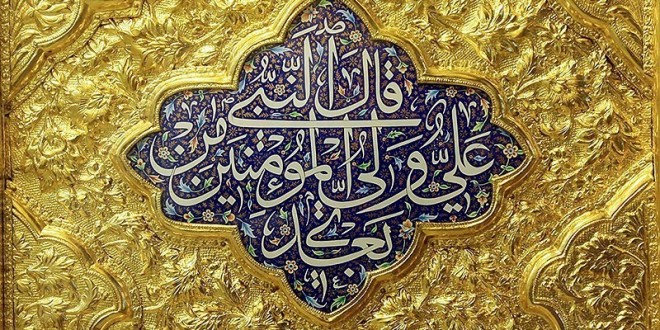 قال النبي ص
علي ولي المؤمنين من
بعدي